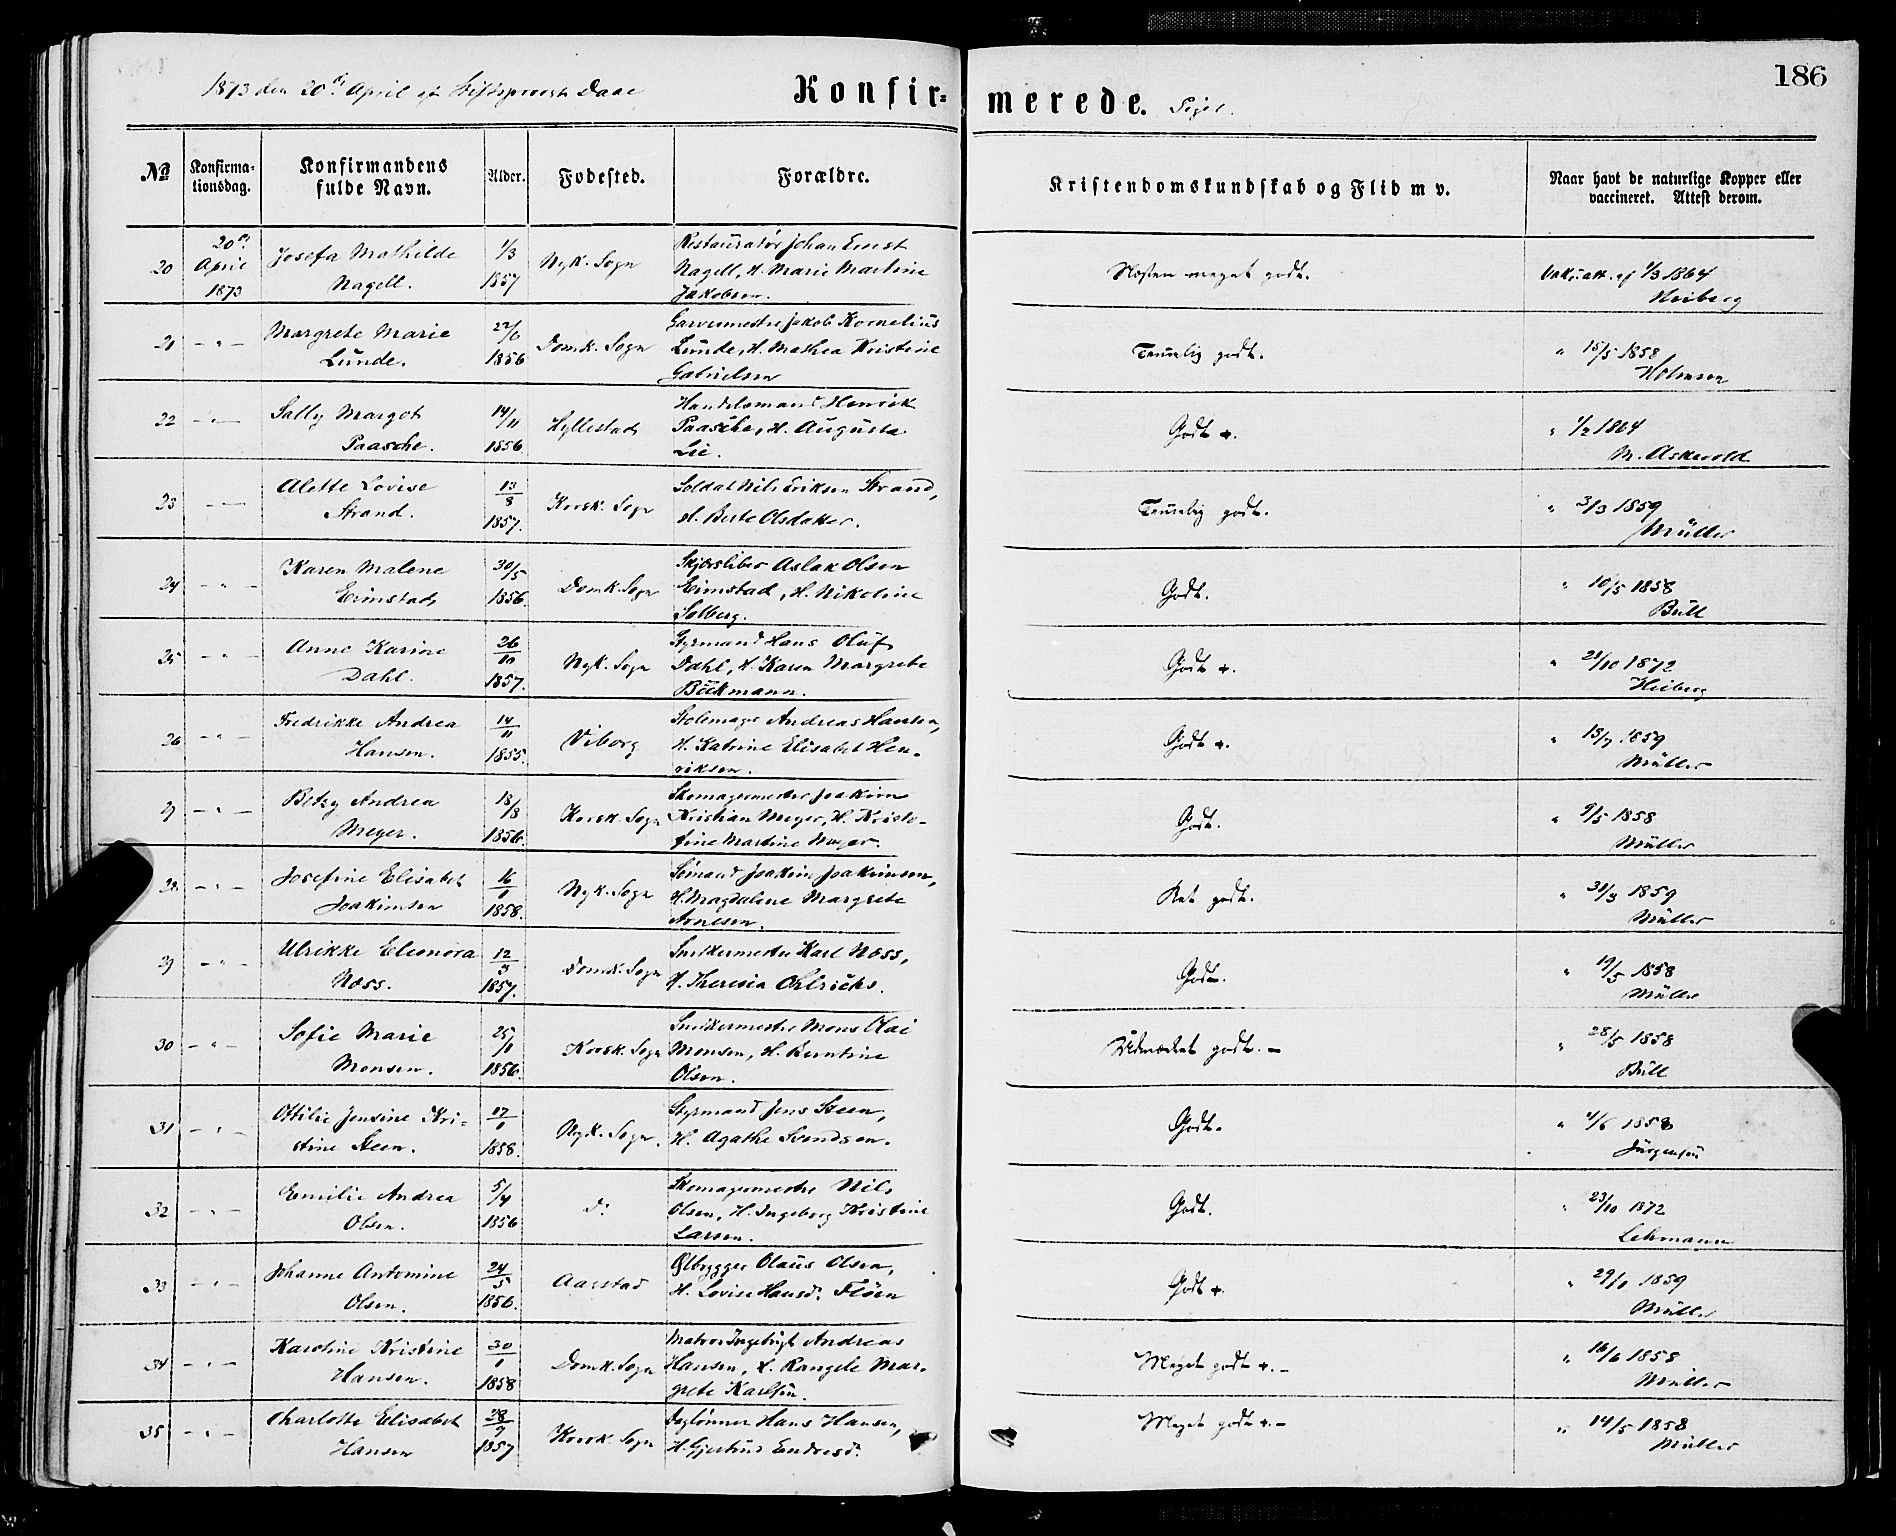 186
1873 den 20de April af Stiftsprovst Daae
Konfir=
merede. Piger.
No
Konfirma-
tionsdag.
Konfirmandens
fulde Navn.
Alder.
Fødested.
Forældre.
Kristendomskundskab og Flid m v.
Naar havt de naturlige Kopper eller
vaccineret. Attest derom.
20 20de April 1873 Josefa Mathilde Nagell. 1/3 1857 Nyk. Sogn
Restauratør Johan Ernst
Nagell, H. Marie Martine
Jakobsen.
Næsten meget godt. Vaks. att. af 1/3 1864
Heiberg
21 - " - Margrete Marie Lunde. 22/6 1856 Domk. Sogn
Garvermester Jakob Kornelius
Lunde, H. Mathea Kristine
Gabrielsen
Temmelig godt. " 18/5 1858
Holmsen
22 - " - Sally Margot Paasche. 14/11 1856 Hyllestad
Handelsmand Henrik
Paasche, H. Augusta
Lie.
Godt +. " 1/2 1864
M. Askevold
23 - " - Alette Lovise Strand. 13/3 1857. Korsk. Sogn
Soldat Nils Eriksen Strand,
H. Berte Olsdatter.
Temmelig godt. " 3/3 1859
Müller
24 - " - Karen Malene Erimstad 30/5 1856. Domk. Sogn
Skjærsliber Aslak Olsen
Erimstad, H. Nikoline
Solberg.
Godt. " 10/5 1858
Bull
25 - " - Anne Karine Dahl. 26/10 1857. Nyk. Sogn
Styrmand Hans Oluf
Dahl, H. Karen Margrete
Böckmann.
Godt +. " 28/10 1872
Heiberg
26 - " - Fredrikke Andrea Hansen. 14/11 1855. Viborg
Stolemager Andreas Hansen,
H. Katrine Elisabet Hen-
riksen.
Godt +. " 15/7 1859
Müller
27 - " - Betzy Andrea Meyer. 18/8 1856. Korsk. Sogn
Skomagermester Joakim
Kristian Meyer, H. Kristo-
fine Martine Meyer.
Godt. " 9/5 1858
Müller
28. - " - Josefine Elisabet Joakimsen 16/1 1858. Nyk. Sogn
Sømand Joakim Joakimsen,
H. Magdalene Margrete
Arnesen.
Ret godt. " 31/3 1859
Müller
29 - " - Ulrikke Eleonora Næss. 12/3 1857. Domk. Sogn
Snedkermester Karl Næss,
H. Theresia Ohlrichs.
Godt. " 19/5 1858
Müller
30 - " - Sofie Marie Monsen. 25/1 1856. Korsk. Sogn
Snedkermester Mons Olai
Monsen, H. Berntine
Olsen.
Udmærket godt. - " 28/5 1858
Bull
31 - " - Ottilie Jensine Kri-
stine Steen. 17/1 1858. Nyk. Sogn.
Styrmand Jens Steen,
H. Agathe Svendsen.
Godt. " 4/6 1858
Jürgensen
32 - " - Emilie Andrea Olsen. 5/4 1856 Do
Skomagermester Nils
Olsen, H. Ingeborg Kristine
Larsen.
Godt. " 23/10 1872
Lehmann
33 - " - Johanne Antomine Olsen. 24/5 1856. Aarstad
Ølbrygger Olaus Olsen,
H. Lovise Hansdr Fløen
Godt +. " 29/1 1859
Müller
34 - " - Karoline Kristine Hansen. 30/1 1858 Domk. Sogn
Matros Ingebrigt Andreas
Hansen, H. Rangele Mar-
grete Karlsen.
Meget godt +. - " 16/6 1858
Müller
35 - " - Charlotte Elisabet Hansen 28/9 1857 Korsk. Sogn
Daglønner Hans Hansen,
H. Gjertrud Endresdr
Meget godt +. - " 14/5 1858
Müller